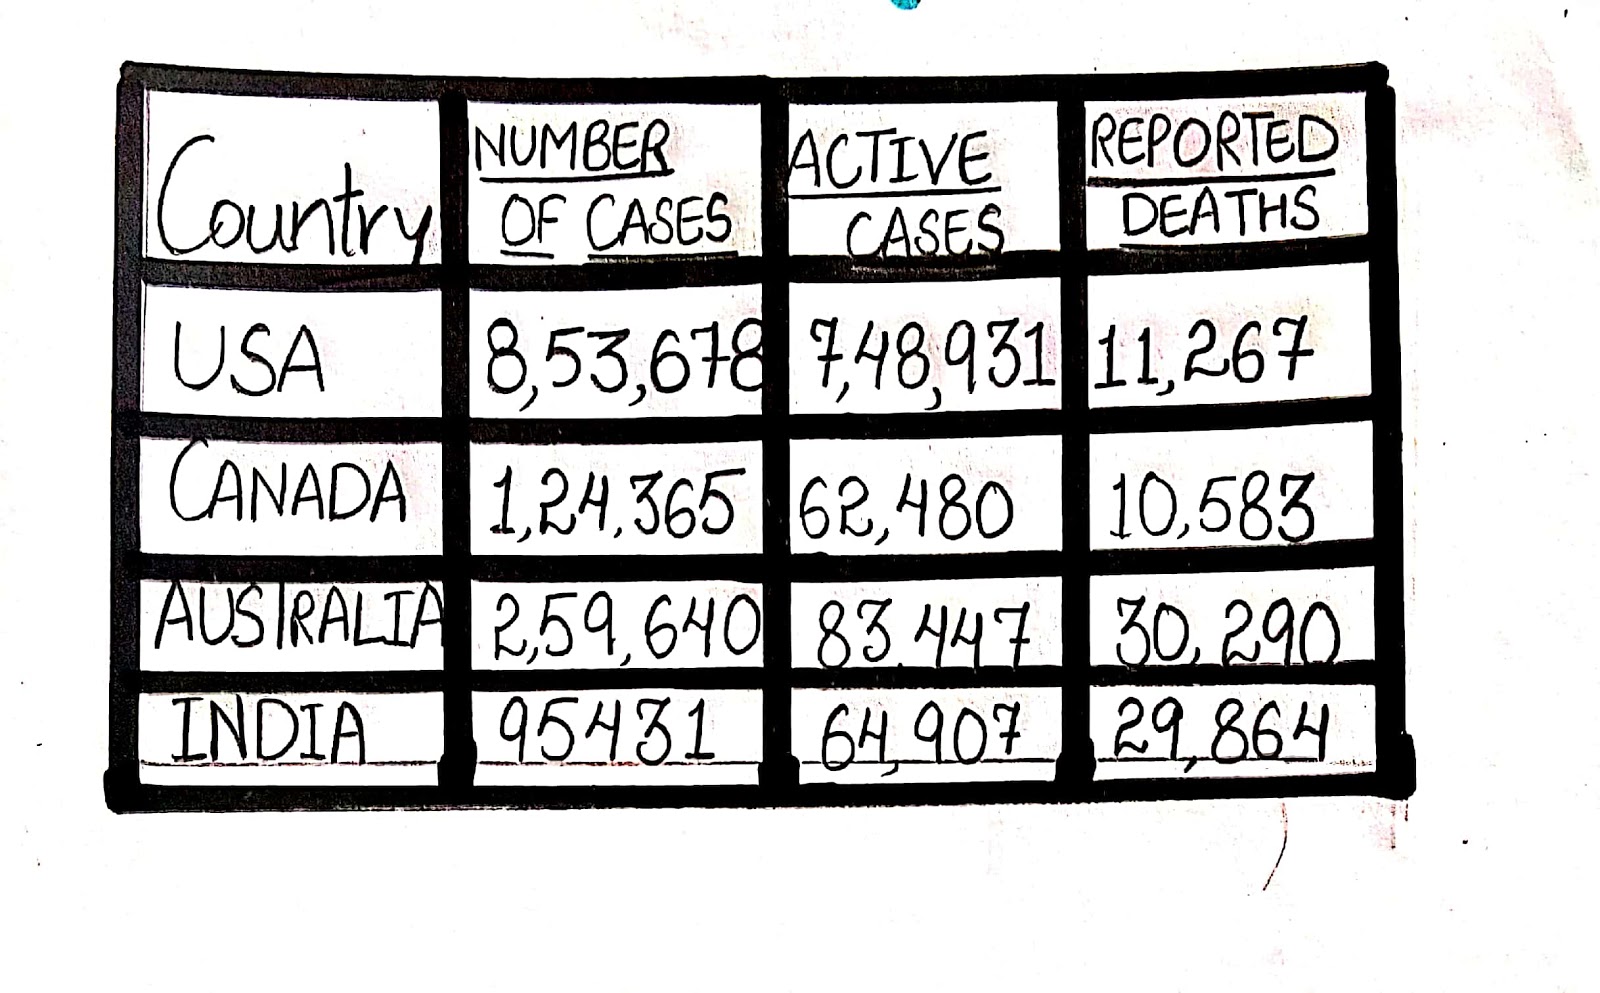 Country NUMBER OF CASES ACTIVE CASES REPORTED DEATHS
USA 8,53,678 7,48,931 11,267
CANADA 1,24,365 62,480 10,583
AUSTRALIA 2,59,640 83.447 30,290
INDIA 95431 64,907 29,864